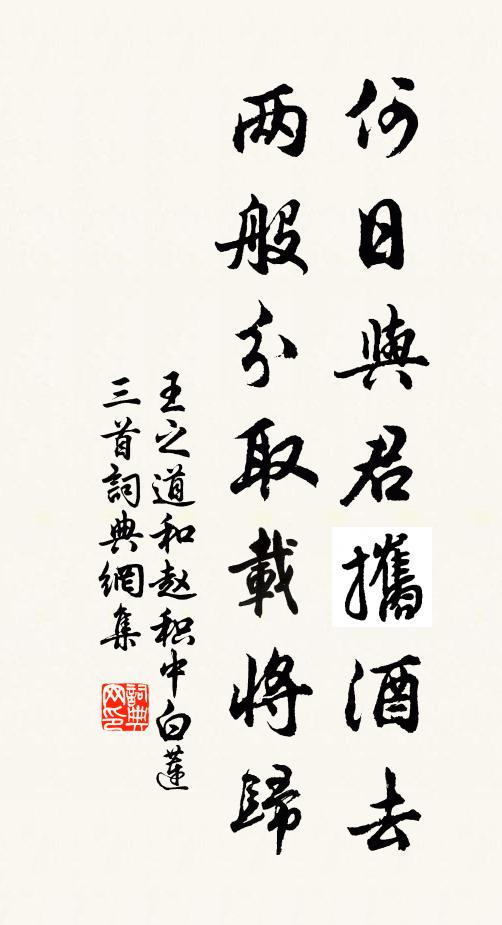 何日與君攜酒去
两般分取載將歸
王之道和赵积中白蓮
三首詞典網集
詞典网印